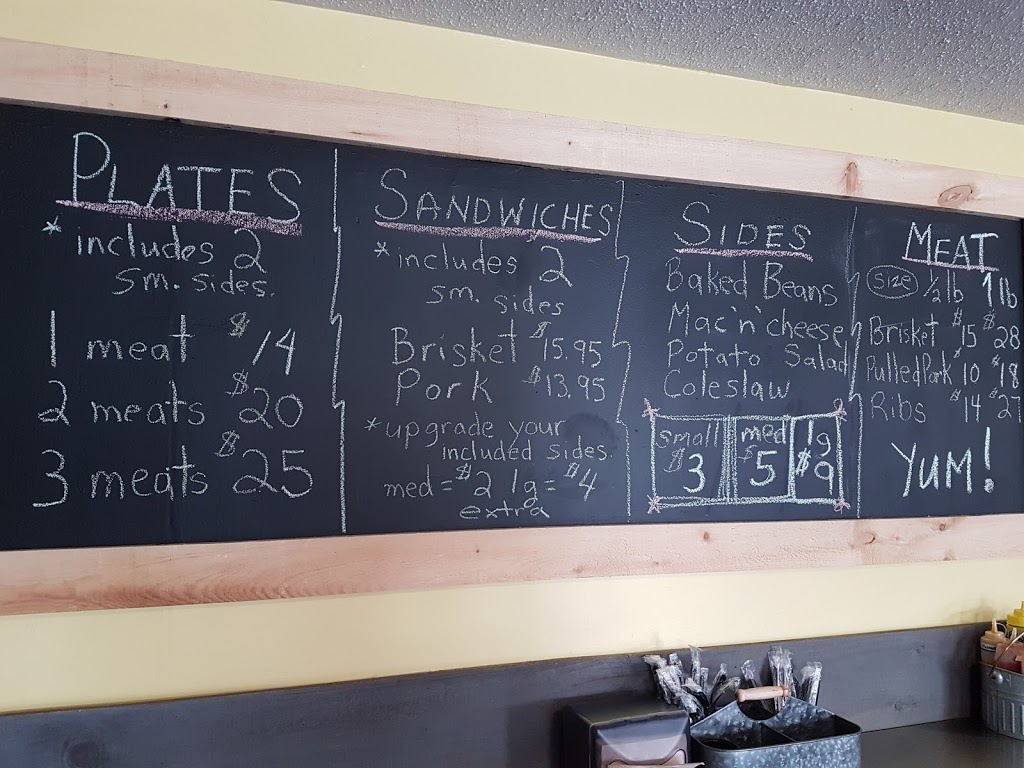 PLATES
* includes 2
sm. sides.
1 meat $14
2 meats $20
3 meats $25
SANDWICHES
* includes 2
sm. sides
Brisket $15.95
Pork $13.95
* upgrade your
included sides.
med = $2 lg = $4
extra
SIDES
Baked Beans
Mac'n'cheese
Potato Salad
Coleslaw
small med lg
$3 $5 $9
MEAT
size 1/2 lb 1 lb
Brisket $15 $28
Pulled Pork 10 $18
Ribs $14 $27
YUM!